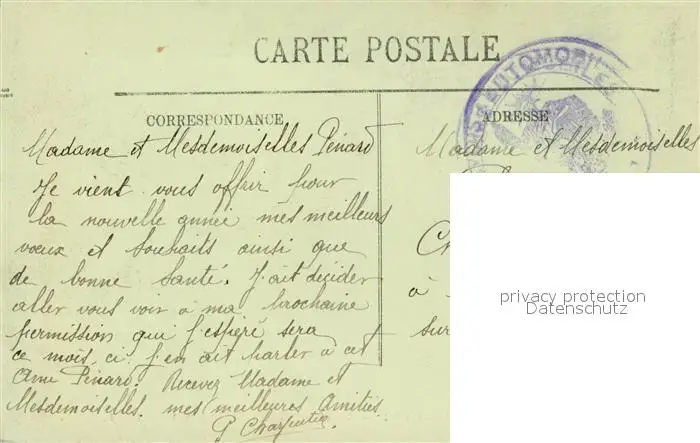 CARTE POSTALE
CORRESPONDANCE
Madame et Mesdemoiselles Pénard
Je vient vous offrir pour
la nouvelle année mes meilleurs
vœux et souhaits ainsi que
de bonne santé. J'ait décider
aller vous voir à ma prochaine
permission qui j'espère sera
ce mois ci j'en ait parler à cet
Ami Pénard. Recevez Madame et
Mesdemoiselles. mes meilleures Amitiés
P Charpentier.
AUTOMOBILES
ADRESSE
Madame et Mesdemoiselles
à
sur
privacy protection
Datenschutz